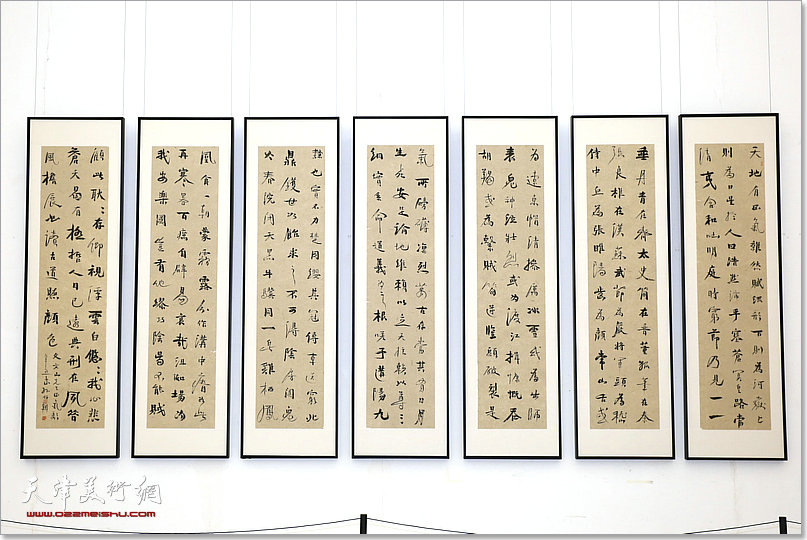 天地有正氣雜然賦流形下則為河嶽上
則為日星於人曰浩然沛乎塞蒼冥皇路當
清夷含和吐明庭時窮節乃見一一
垂丹青在齊太史簡在晉董狐筆在秦
張良椎在漢蘇武節為嚴將軍頭為嵇
侍中血為張睢陽齒為顏常山舌或
為遼東帽清操厲冰雪或為出師
表鬼神泣壯烈或為渡江楫慷慨吞
胡羯或為擊賊笏逆豎頭破裂是
氣所磅礴凜烈萬古存當其貫日月
生死安足論地維賴以立天柱賴以尊三
綱實系命道義為之根嗟予遘陽九
隸也實不力楚囚纓其冠傳車送窮北
鼎鑊甘如飴求之不可得陰房闃鬼
火春院閟天黑牛驥同一皂雞棲鳳
凰食一朝蒙霧露分作溝中瘠如此
再寒暑百癘自辟易哀哉沮洳場為
我安樂國豈有他繆巧陰陽不能賊
顧此耿耿存仰視浮雲白悠悠我心悲
蒼天曷有極哲人日已遠典刑在夙昔
風檐展書讀古道照顏色
天津美術網
www.022meishu.com